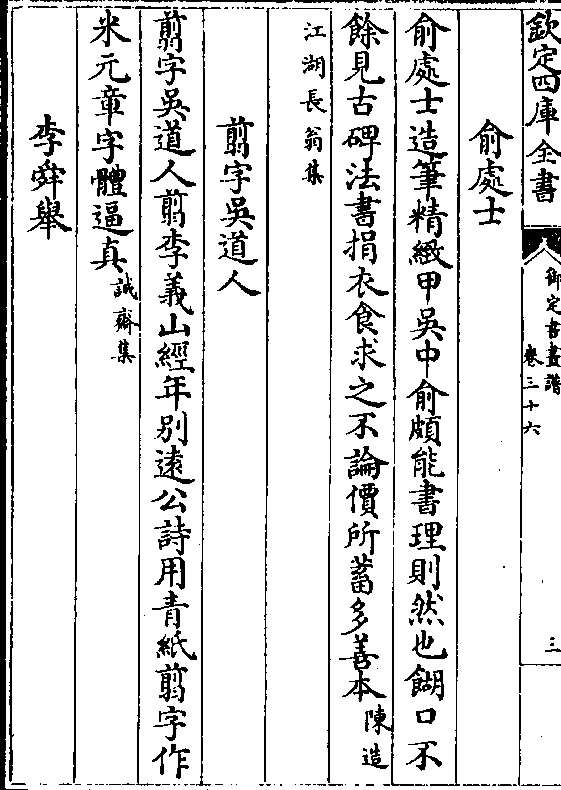 欽定四庫全書
御定書畫譜
卷三十六
三
俞處士
俞處士造筆精緻甲吳中俞頗能書理則然也餬口不
餘見古碑法書捐衣食求之不論價所蓄多善本陳造
江湖長翁集
翦字吳道人
翦字吳道人翦李義山經年別遠公詩用青紙翦字作
米元章字體逼真誠齋集
李舜舉